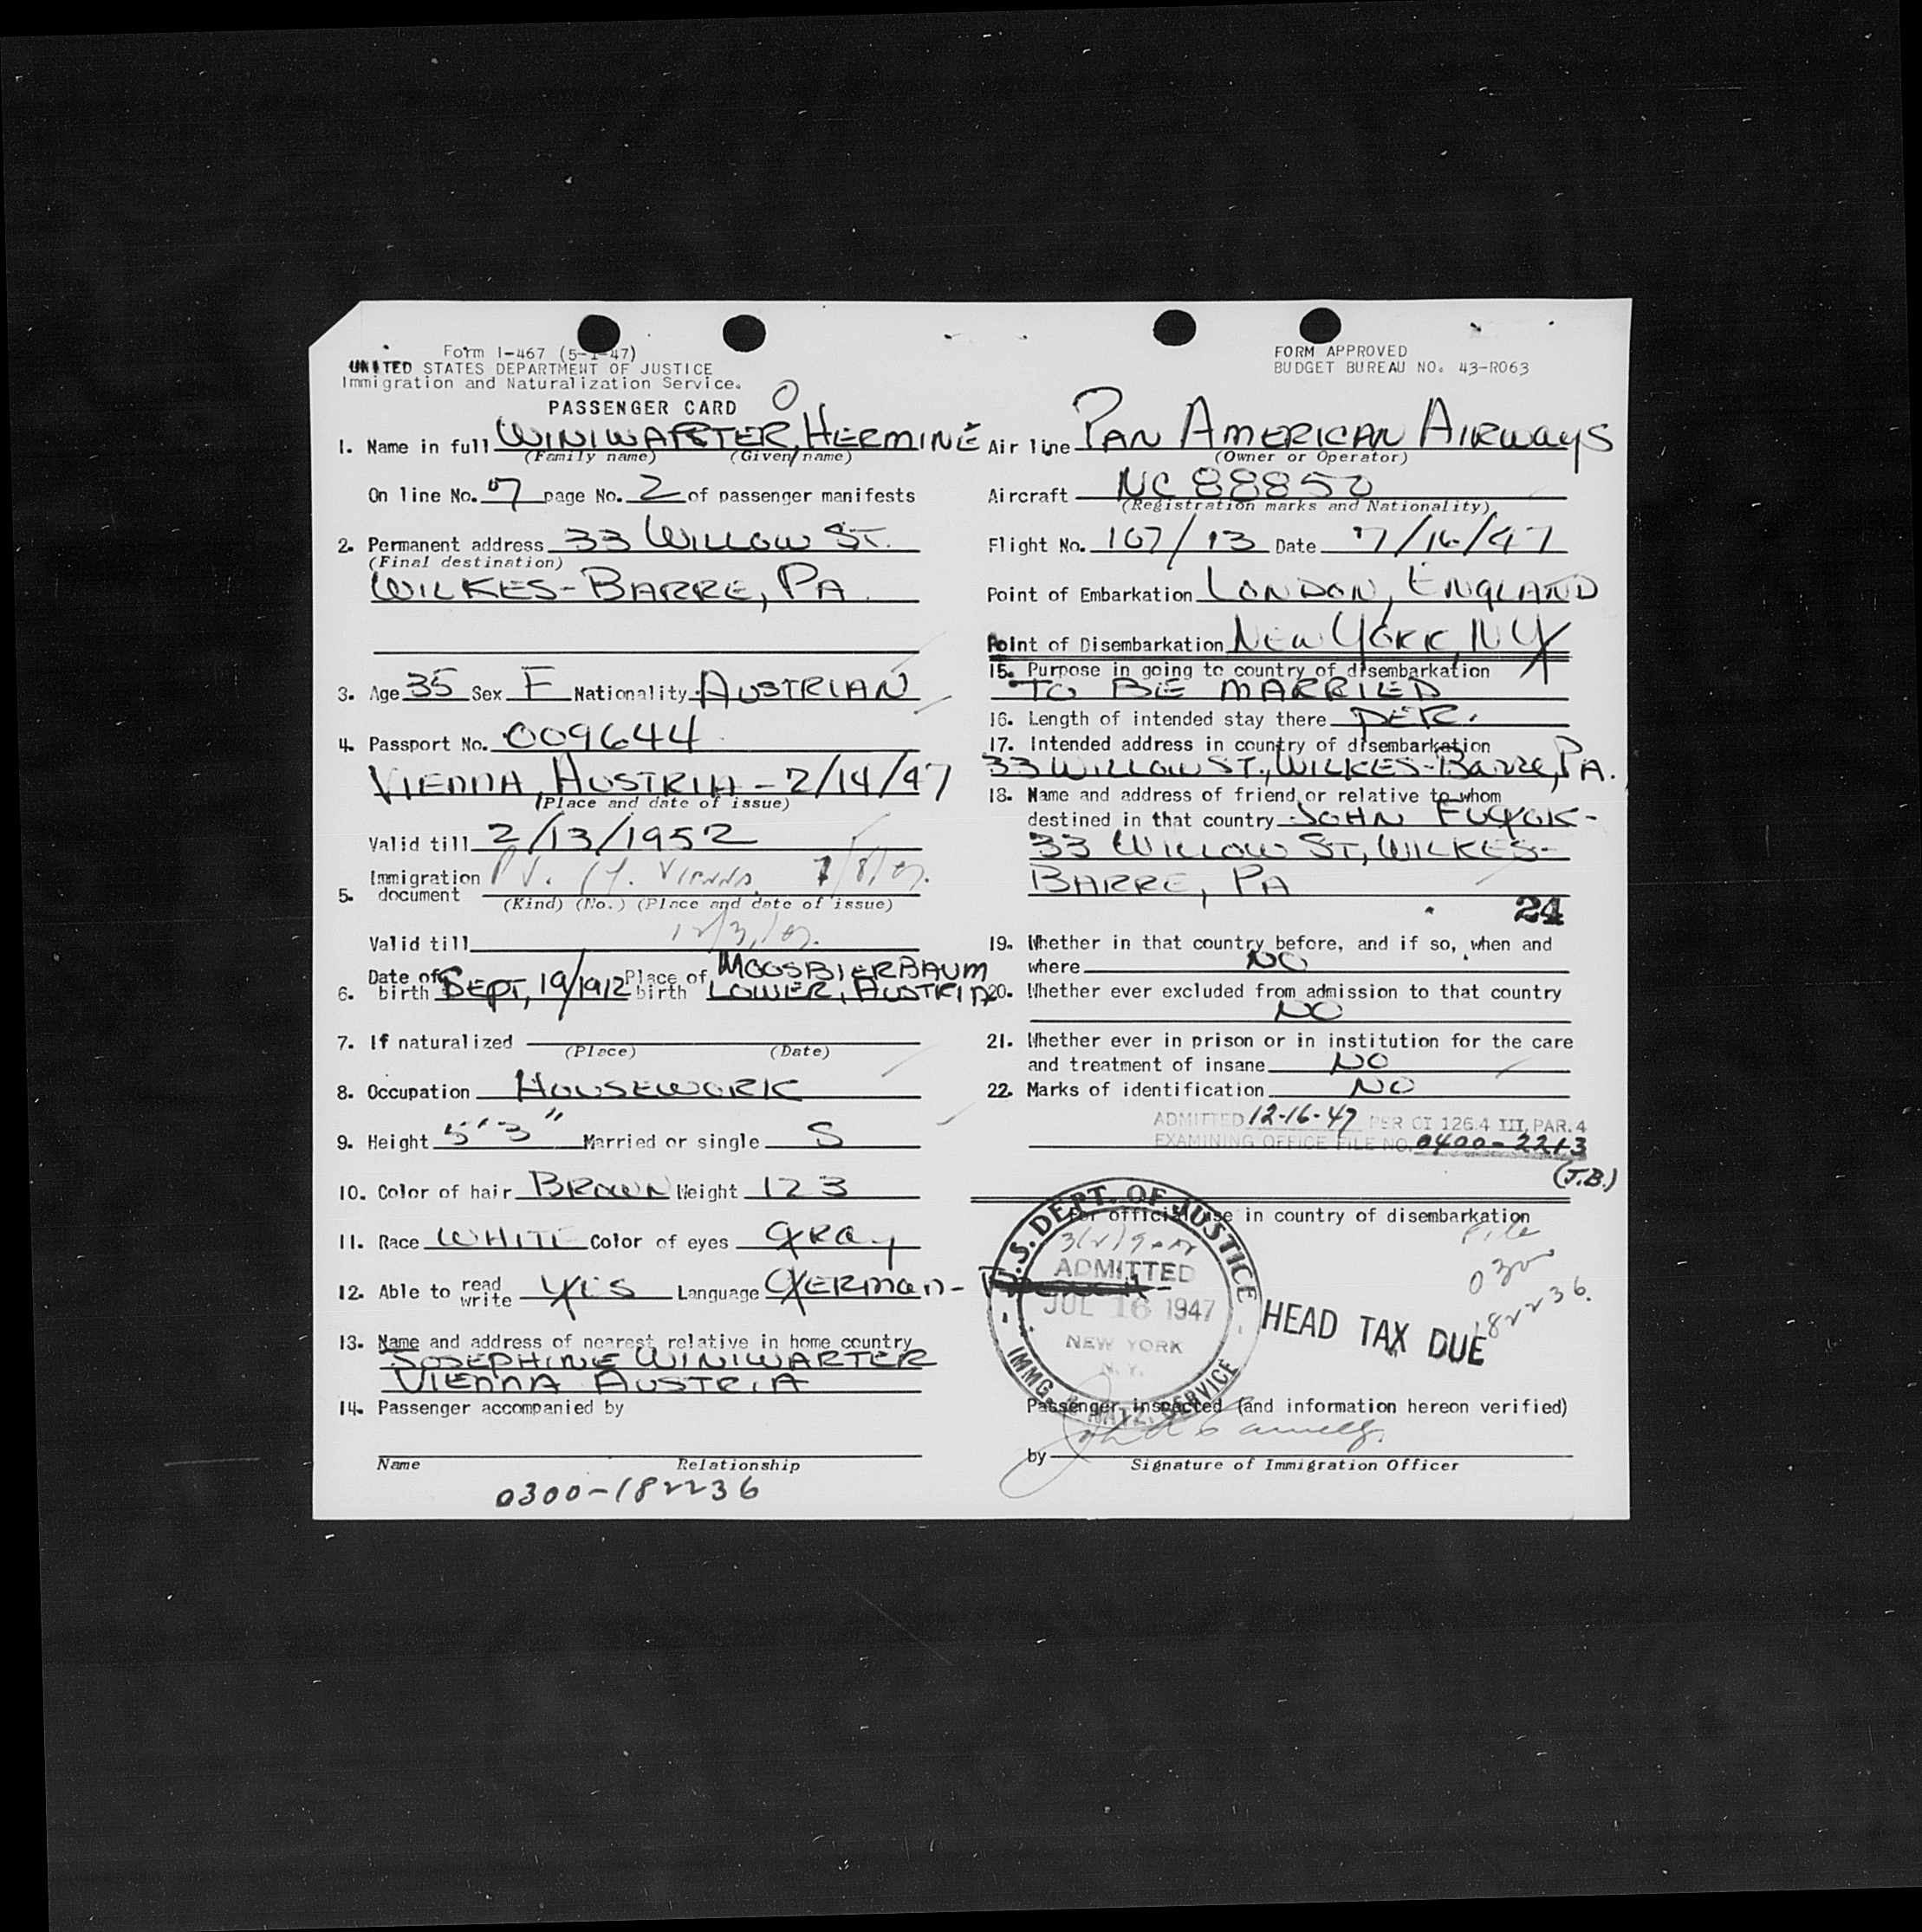 Form I-467 (5-1-47)
UNITED STATES DEPARTMENT OF JUSTICE
Immigration and Naturalization Service.
PASSENGER CARD
1. Name in full WINIWARTER, HERMINE
(Family name) (Given name)
On line No. 7 page No. 2 of passenger manifests
2. Permanent address 33 WILLOW ST.
(Final destination)
WILKES-BARRE, PA.
3. Age 35 Sex F Nationality AUSTRIAN
4. Passport No. 009644
VIENNA, AUSTRIA - 2/14/47
(Place and date of issue)
Valid till 2/13/1952
5. Immigration document VIENNA
(Kind) (No.) (Place and date of issue)
Valid till
6. Date of birth SEPT, 19/1912 Place of birth MOOSBIERBAUM
LOWER, AUSTRIA
7. If naturalized
(Place) (Date)
8. Occupation HOUSEWORK
9. Height 5'3" Married or single S
10. Color of hair BROWN Weight 123
11. Race WHITE Color of eyes GRAY
12. Able to read write YES Language GERMAN-
13. Name and address of nearest relative in home country
JOSEPHINE WINIWARTER
VIENNA AUSTRIA
14. Passenger accompanied by
Name Relationship
0300-182236
FORM APPROVED
BUDGET BUREAU NO. 43-R063
Air line PAN AMERICAN AIRWAYS
(Owner or Operator)
Aircraft NC 88850
(Registration marks and Nationality)
Flight No. 107/13 Date 7/16/47
Point of Embarkation LONDON, ENGLAND
Point of Disembarkation NEW YORK, NY
15. Purpose in going to country of disembarkation
TO BE MARRIED
16. Length of intended stay there PER.
17. Intended address in country of disembarkation
33 WILLOW ST., WILKES-BARRE, PA.
18. Name and address of friend or relative to whom
destined in that country JOHN -
33 WILLOW ST, WILKES-
BARRE, PA
24
19. Whether in that country before, and if so, when and
where NO
20. Whether ever excluded from admission to that country
NO
21. Whether ever in prison or in institution for the care
and treatment of insane NO
22. Marks of identification NO
ADMITTED 12-16-47 PER OI 126.4 III, PAR. 4
EXAMINING OFFICE FILE NO. 0400-2213
(J.B.)
For official use in country of disembarkation
File
0300
182236
U.S. DEPT. OF JUSTICE
ADMITTED
JUL 16 1947
NEW YORK
N.Y.
IMMG. & NATZ. SERVICE
HEAD TAX DUE
Passenger inspected (and information hereon verified)
by
Signature of Immigration Officer